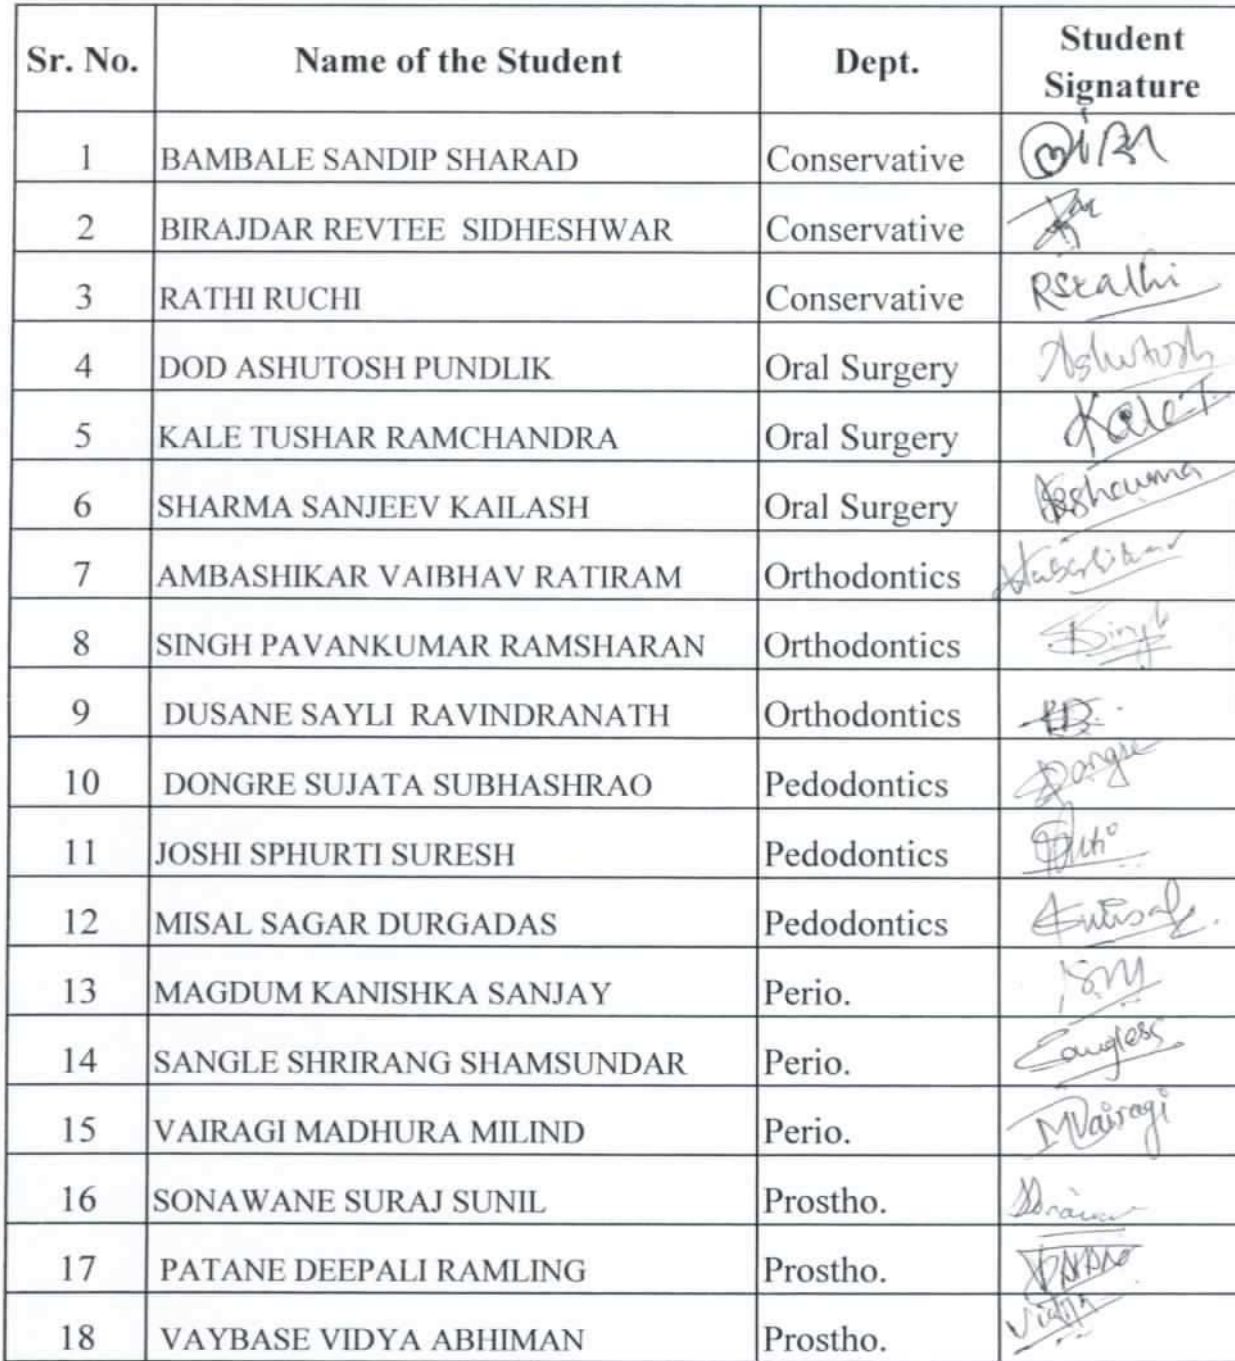 Sr. No. Name of the Student Dept. Student Signature
1 BAMBALE SANDIP SHARAD Conservative
2 BIRAJDAR REVTEE SIDHESHWAR Conservative
3 RATHI RUCHI Conservative RSRathi
4 DOD ASHUTOSH PUNDLIK Oral Surgery Ashutosh
5 KALE TUSHAR RAMCHANDRA Oral Surgery Kale T.
6 SHARMA SANJEEV KAILASH Oral Surgery
7 AMBASHIKAR VAIBHAV RATIRAM Orthodontics
8 SINGH PAVANKUMAR RAMSHARAN Orthodontics Singh
9 DUSANE SAYLI RAVINDRANATH Orthodontics
10 DONGRE SUJATA SUBHASHRAO Pedodontics Dongre
11 JOSHI SPHURTI SURESH Pedodontics
12 MISAL SAGAR DURGADAS Pedodontics
13 MAGDUM KANISHKA SANJAY Perio.
14 SANGLE SHRIRANG SHAMSUNDAR Perio.
15 VAIRAGI MADHURA MILIND Perio. MVairagi
16 SONAWANE SURAJ SUNIL Prostho.
17 PATANE DEEPALI RAMLING Prostho.
18 VAYBASE VIDYA ABHIMAN Prostho. Vidya